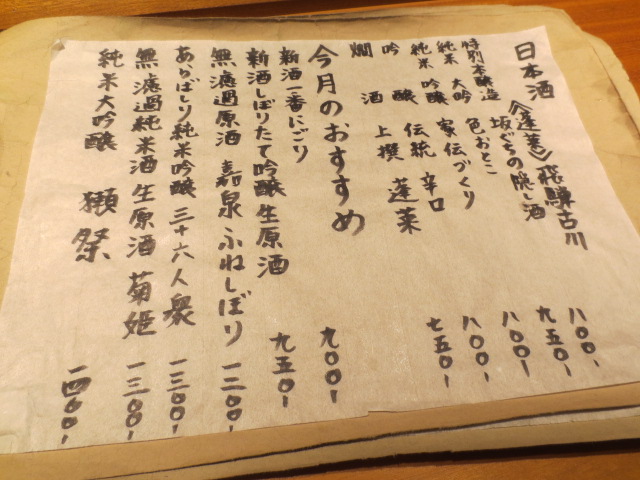 日本酒 《蓬莱》 飛騨古川
坂ぐちの隠し酒 八〇〇-
特別本醸造 色おとこ 九五〇-
純米大吟 家伝づくり 八〇〇-
純米吟醸 伝統辛口 八〇〇-
吟醸 上撰 蓬莱 七五〇-
燗酒
今月のおすすめ
新酒一番にごり 九〇〇-
新酒しぼりたて吟醸生原酒 九五〇-
無濾過原酒 嘉泉ふねしぼり 一二〇〇-
あらばしり純米吟醸 三十六人衆 一三〇〇-
無濾過純米酒生原酒 菊姫 一三〇〇-
純米大吟醸 獺祭 一四〇〇-